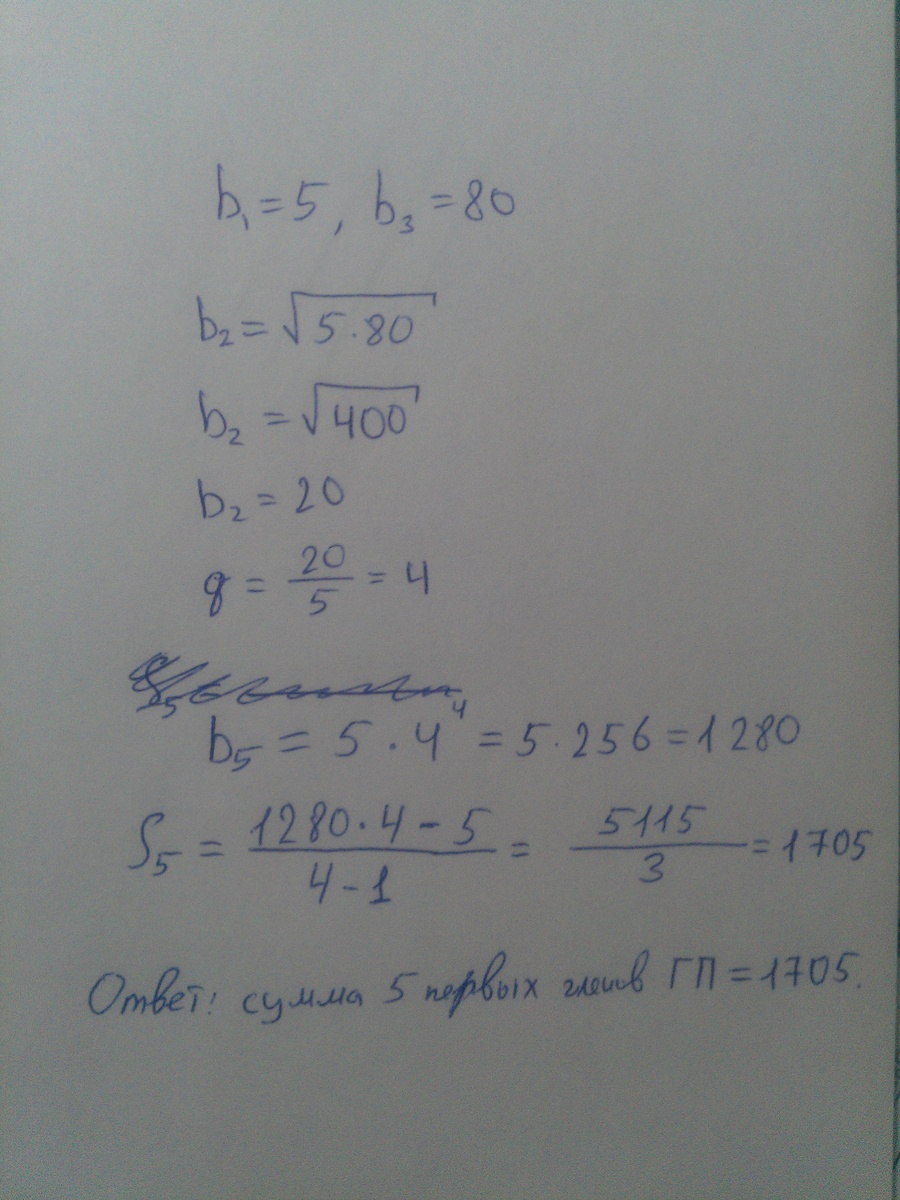 b₁ = 5, b₃ = 80
b₂ = √(5·80)
b₂ = √400
b₂ = 20
q = 20/5 = 4
b₅ = 5 · 4⁴ = 5·256 = 1280
S₅ = (1280·4 - 5)/(4 - 1) = 5115/3 = 1705
Ответ: сумма 5 первых членов ГП = 1705.